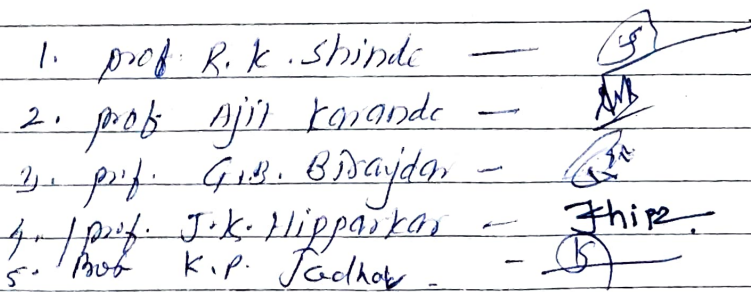 1. prof. R.K. Shinde —
2. prof Ajit Karande —
3. prof. G.B. Birajdar -
4. prof. J.K. Hipparkar -
5. Prof K.P. Jadhav -